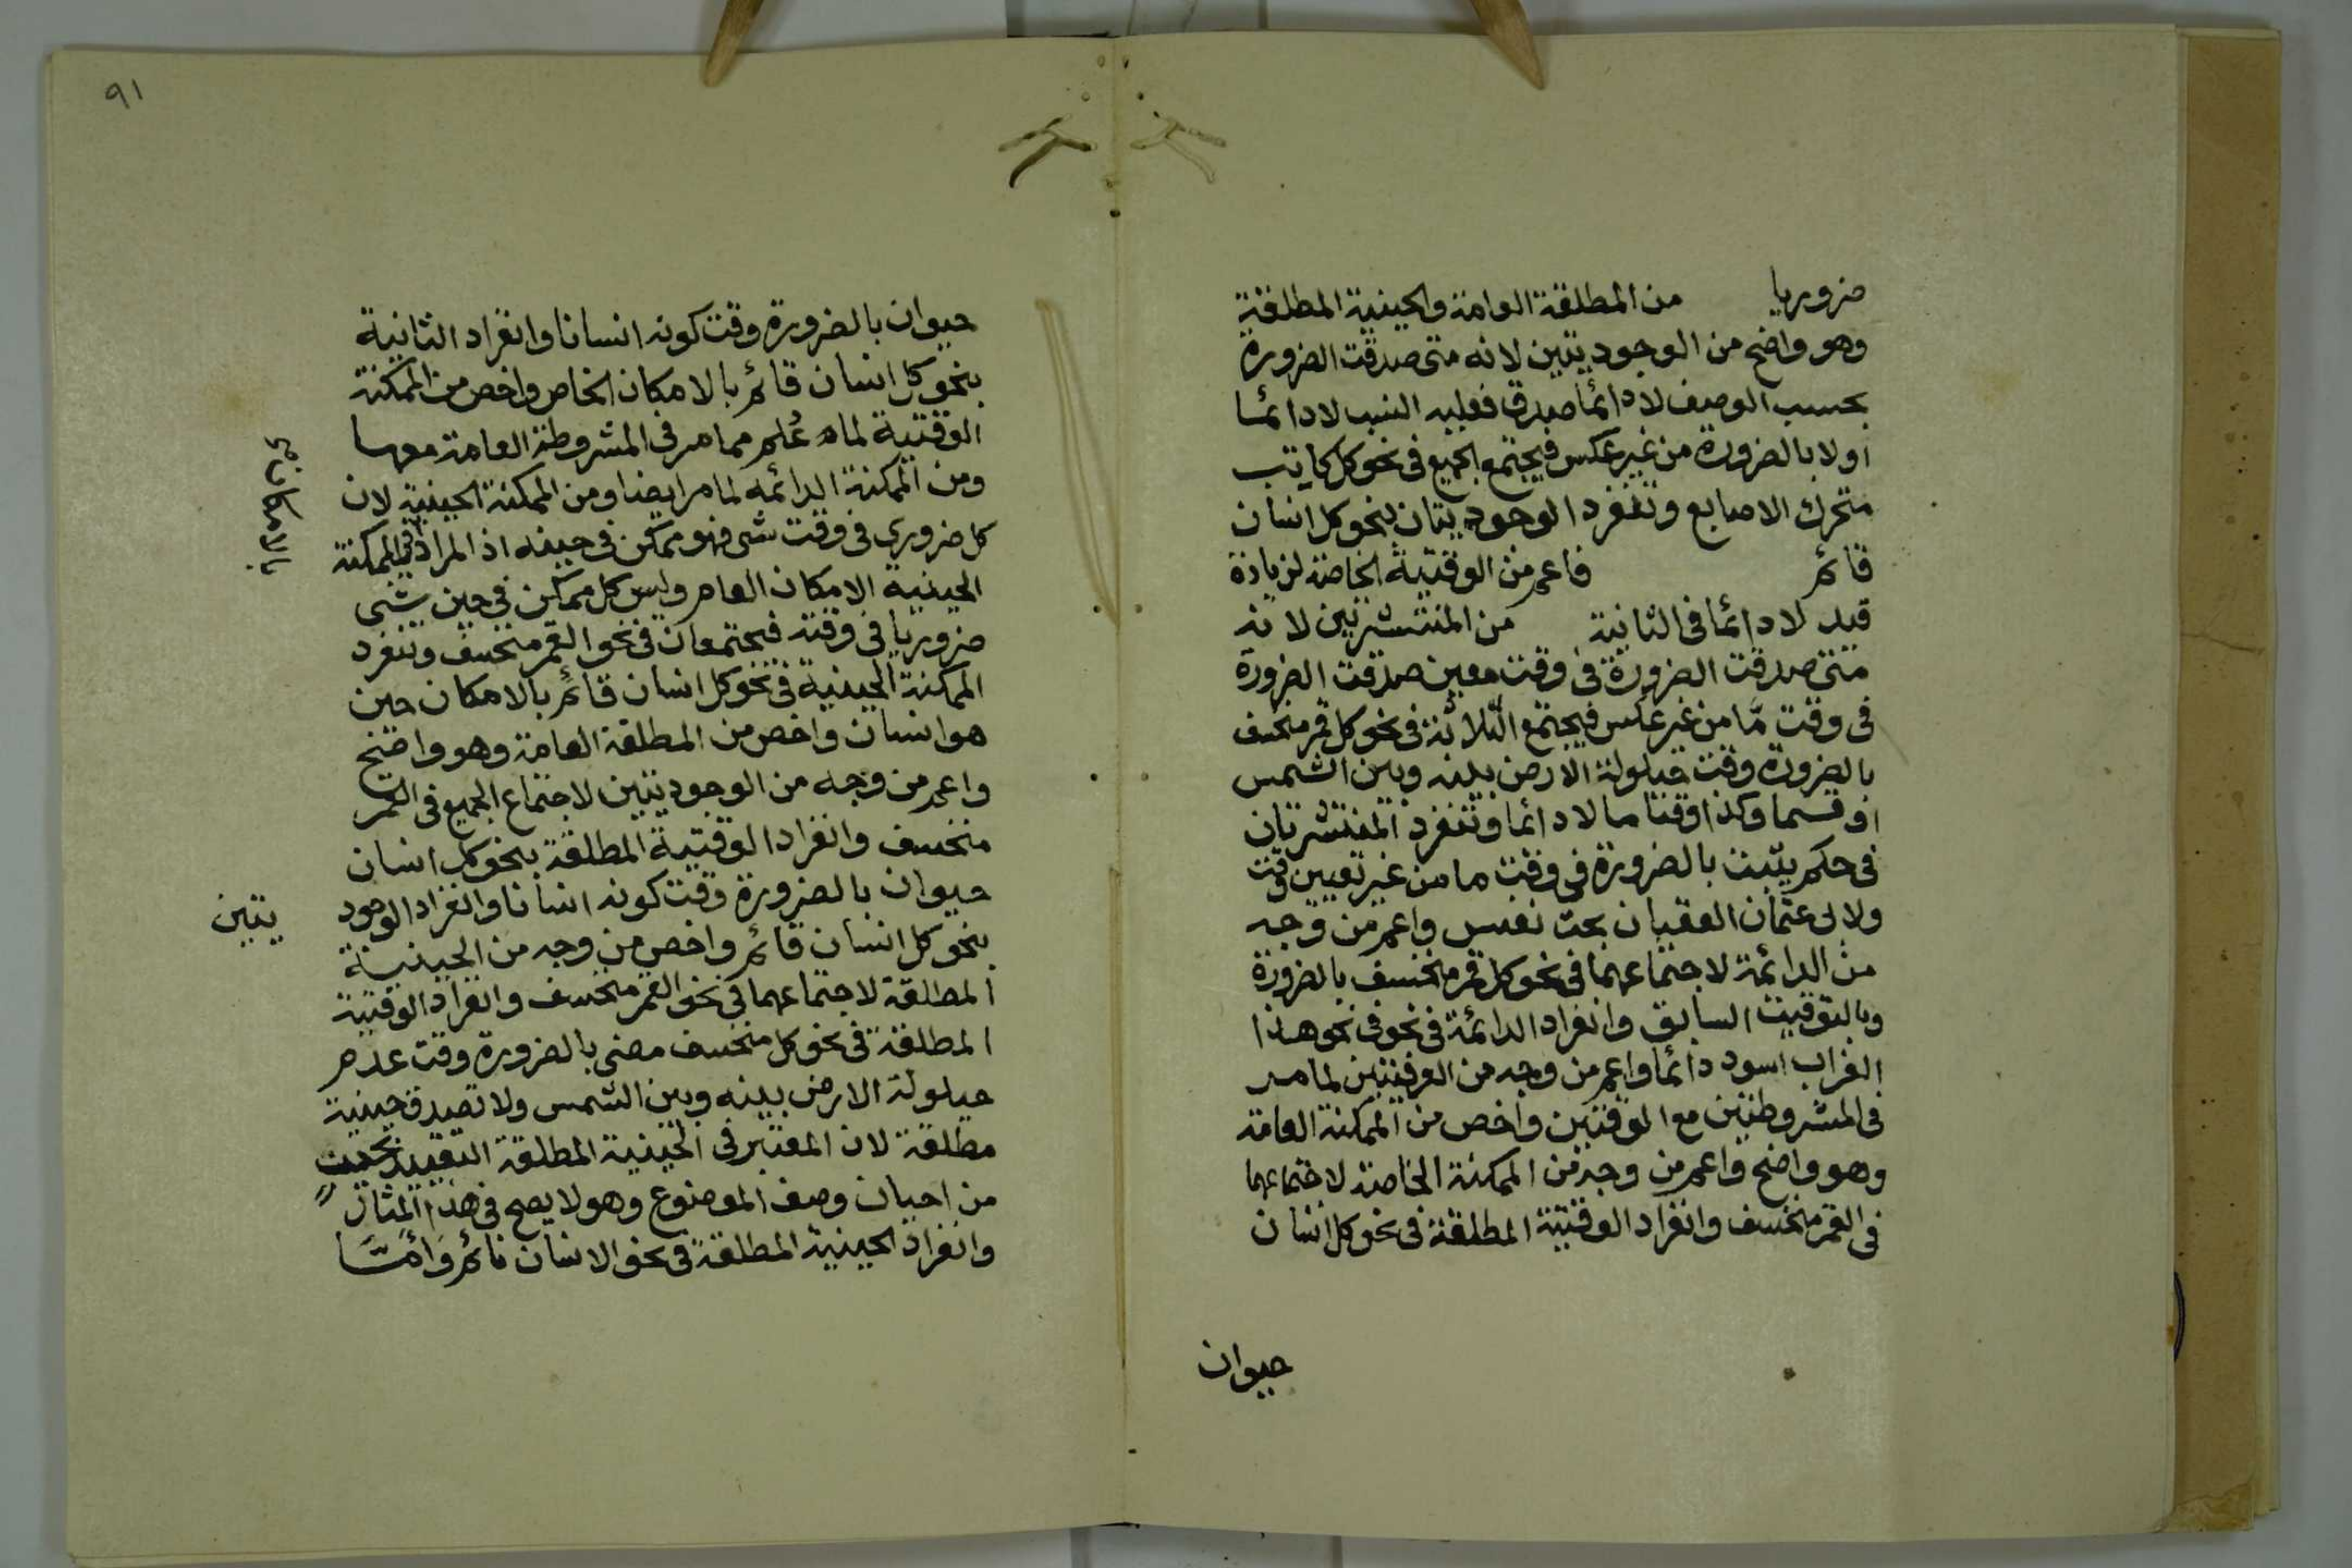 ضروريا من المطلقة العامة والحينية المطلقة
وهو واضح من الوجوديتين لانه متى صدقت الضرورة
بحسب الوصف لا دائما صدق فعليه النسب لا دائما
اولا بالضرورة من غير عكس فيجتمع الجميع فى نحو كل كاتب
متحرك الاصابع وتنفرد الوجوديتان بنحو كل انسان
قائم فاعم من الوقتية الخاصة لزيادة
قيد لا دائما فى الثانية من المنتشرتين لانه
متى صدقت الضرورة فى وقت معين صدقت الضرورة
فى وقت مّا من غير عكس فيجتمع الثلاثة فى نحو كل قمر منخسف
بالضرورة وقت حيلولة الارض بينه وبين الشمس
او قسما وكذا وقتا ما لا دائما وتنفرد المنتشرتان
فى حكم يثبت بالضرورة فى وقت ما من غير تعيين وقت
ولابى عثمان العقبان بحث نفيس واعم من وجه
من الدائمة لاجتماعهما فى نحو كل قمر منخسف بالضرورة
وبالتوقيت السابق وانفراد الدائمة فى نحو فى نحو هذا
الغراب اسود دائما واعم من وجه من العرفيتين لما مر
فى المشروطتين مع الوقتيتين واخص من الممكنة العامة
وهو واضح واعم من وجه من الممكنة الخاصة لاجتماعهما
فى القمر منخسف وانفراد الوقتية المطلقة فى نحو كل انسان
حيوان
٩١
حيوان بالضرورة وقت كونه انسانا وانفراد الثانية
بنحو كل انسان قائم بالامكان الخاص واخص من الممكنة
الوقتية لما عُلم مما مر فى المشروطة العامة معها
ومن الممكنة الدائمه لما مر ايضا ومن الممكنة الحينية لان
كل ضروري فى وقت شى فهو ممكن فى حينه اذ المراد فى الممكنة
الحينية الامكان العام وليس كل ممكن فى حين شى
ضروريا فى وقته فيجتمعان فى نحو القمر منخسف وتنفرد
الممكنة الحينية فى نحو كل انسان قائم بالامكان حين
هو انسان واخص من المطلقة العامة وهو واضح
واعم من وجه من الوجوديتين لاجتماع الجميع فى القمر
منخسف وانفراد الوقتية المطلقة بنحو كل انسان
حيوان بالضرورة وقت كونه انسانا وانفراد الوجود
يتين
بنحو كل انسان قائم واخص من وجه من الحينية
المطلقة لاجتماعهما فى نحو القمر منخسف وانفراد الوقتية
المطلقة فى نحو كل منخسف مضى بالضرورة وقت عدم
حيلولة الارض بينه وبين الشمس ولا تصدق حينية
مطلقة لان المعتبر فى الحينية المطلقة التقييد بحين
من احيان وصف الموضوع وهو لا يصح فى هذا المثال
وانفراد الحينية المطلقة فى نحو الانسان نائم وامّا